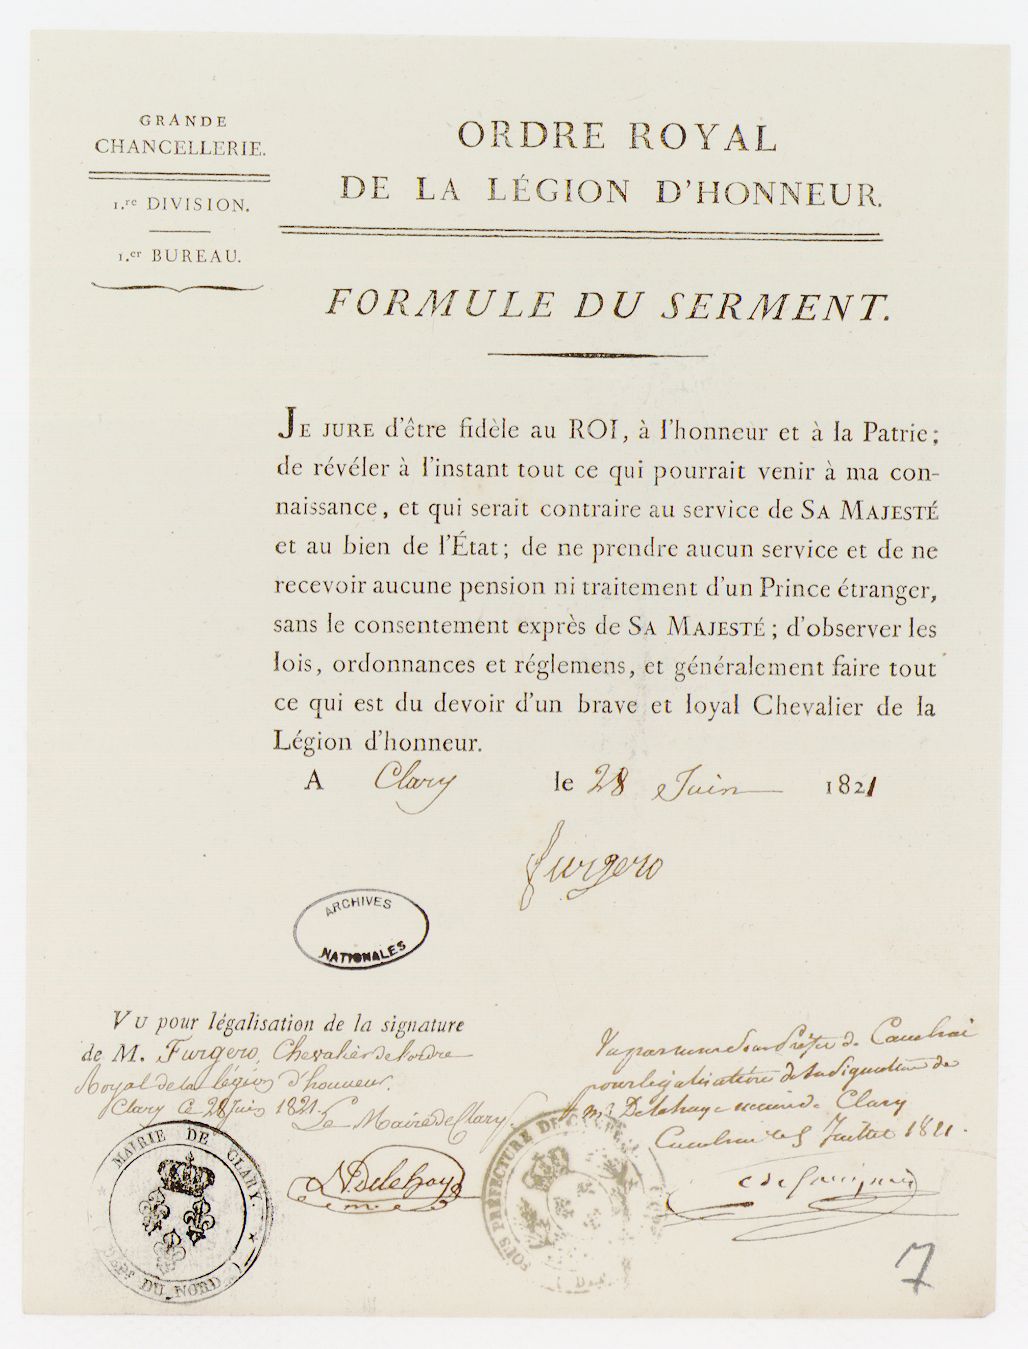 GRANDE
CHANCELLERIE.
1.re DIVISION.
1.er BUREAU.
ORDRE ROYAL
DE LA LÉGION D'HONNEUR.
FORMULE DU SERMENT.
JE JURE d'être fidèle au ROI, à l'honneur et à la Patrie;
de révéler à l'instant tout ce qui pourrait venir à ma con-
naissance, et qui serait contraire au service de SA MAJESTÉ
et au bien de l'État; de ne prendre aucun service et de ne
recevoir aucune pension ni traitement d'un Prince étranger,
sans le consentement exprès de SA MAJESTÉ; d'observer les
lois, ordonnances et réglemens, et généralement faire tout
ce qui est du devoir d'un brave et loyal Chevalier de la
Légion d'honneur.
A Clary le 28 Juin 1821
Furgero
ARCHIVES
NATIONALES
VU pour légalisation de la signature
de M. Furgero, Chevalier de l'ordre
Royal de la légion d'honneur.
Clary Ce 28 Juin 1821. Le Maire de Clary.
Delehaye
MAIRIE DE CLARY.
DU NORD
Vu par nous Sous Préfet de Cambrai
pour légalisation de la Signature de
Mr Delehaye maire de Clary
Cambrai le 5 Juillet 1821.
SOUS PRÉFECTURE DE
7